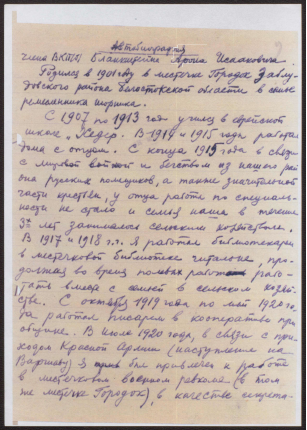 Автобиография
члена ВКП(б) Бланкштейна Арона Исааковича.
Родился в 1901 году в местечке Городок Заблу-
довского района Белостокской области в семье
ремесленника шорника.
С 1907 по 1913 год учился в еврейской
школе "Хедер". В 1914 и 1915 года работал
дома с отцом. С конца 1915 года в связи
с мировой войной и бегством из нашего рай
она русских помещиков, а также значительной
части крестьян, у отца работы по специаль-
ности не стало и семья наша в течение
3х лет занималась сельским хозяйством.
В 1917 и 1918 г.г. я работал библиотекарем
в местечковой библиотеке читальне, про-
должая во время помогать рабо-
тать вместе с семьей в сельском хозяй-
стве. С октября 1919 года по май 1920 го-
да работал писарем в кооперативе при
общине. В июле 1920 года, в связи с при-
ходом Красной Армии (наступление на
Варшаву) я был привлечен к работе
в местечковом военном ревкоме (в том
же местечке Городок), в качестве секрета-